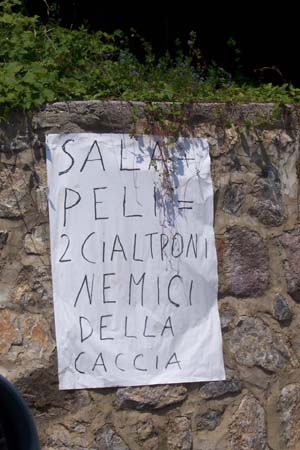 SALA +
PELI =
2 CIALTRONI
NEMICI
DELLA
CACCIA